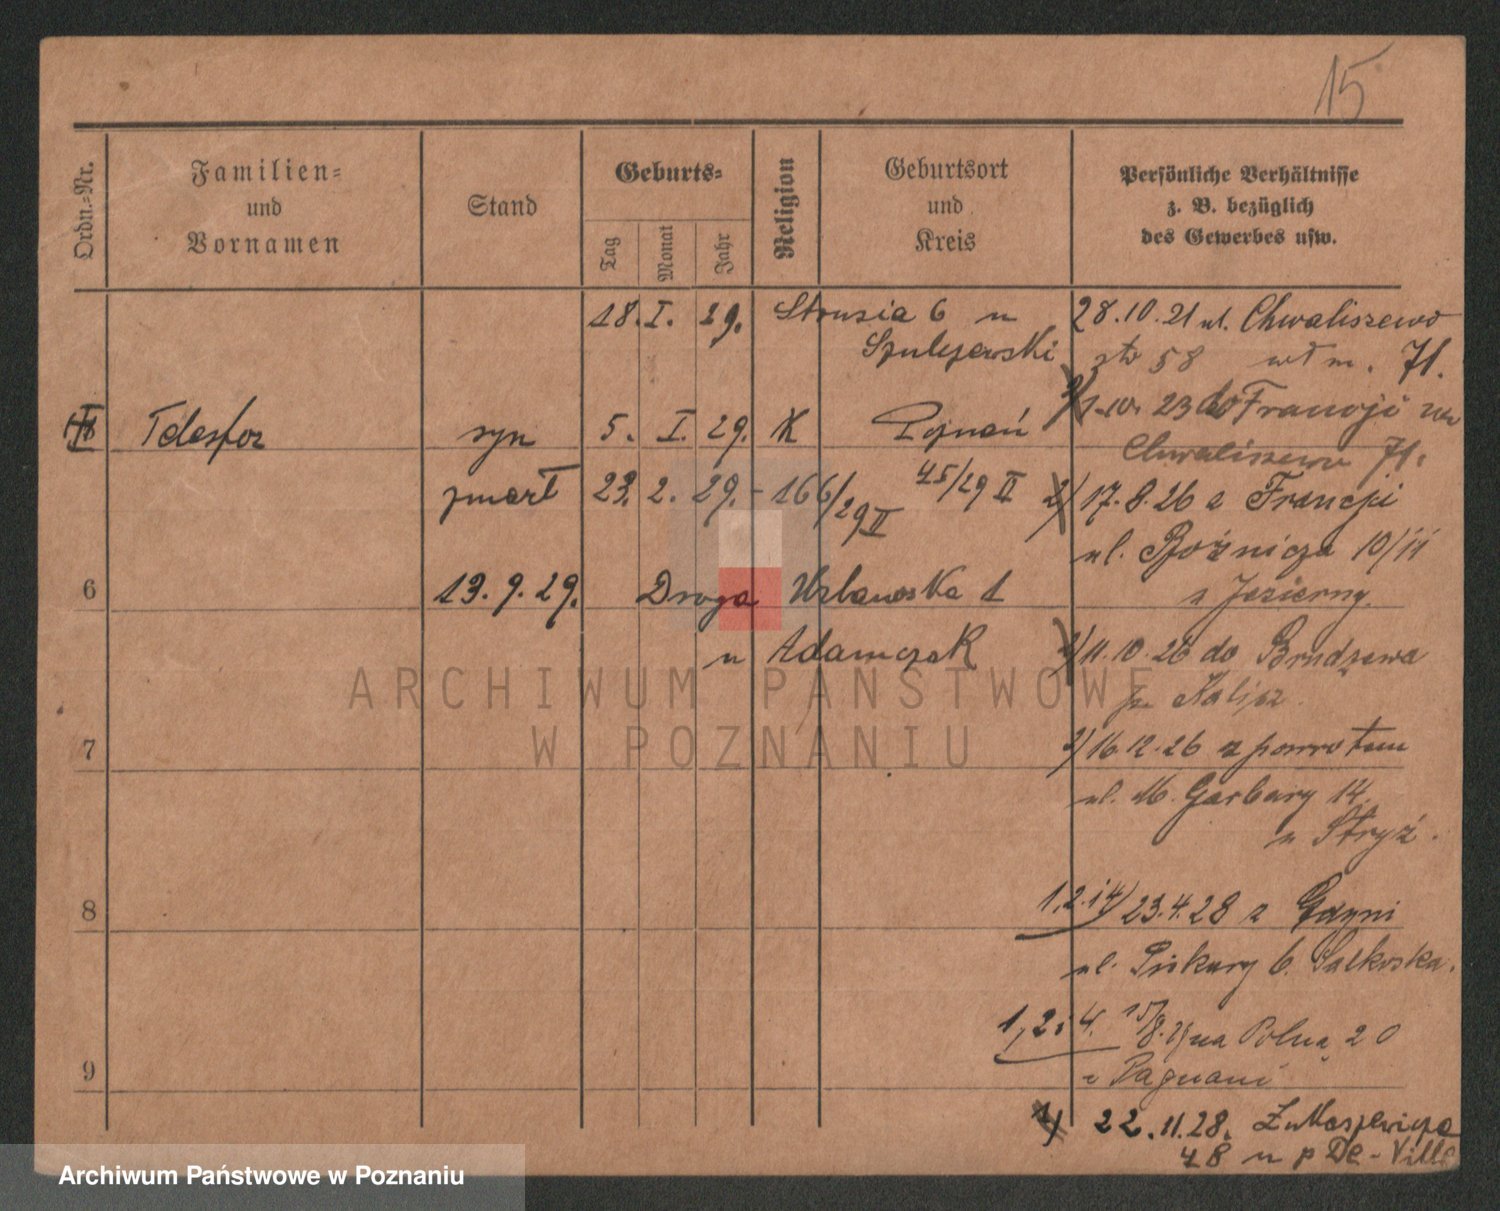 15
Ordn.-Nr.
Familien-
und
Vornamen
Stand
Geburts-
Tag
Monat
Jahr
Religion
Geburtsort
und
Kreis
Persönliche Verhältnisse
z. B. bezüglich
des Gewerbes usw.
18. I. 29. Strusia 6 u
Szulczewski
28.10.21 ul. Chwaliszewo
58 71.
23 do Francji
Chwaliszewo 71.
Telesfor syn 5. I. 29. K Poznań
zmarł 23. 2. 29. - 166/29 II 45/29 II
2/ 17.8.26 z Francji
ul. Bóżnicza 10/11
u Jezierny
6 13. 9. 29. Droga Urbanowska 1
u Adamczak
11.10.26 do Brudzewa
p. Kalisz
7 16.12.26 z powrotem
ul. M. Garbary 14.
u Stryż.
8 1,2 i 4/ 23.4.28 z Gdyni
ul. Piekary 6.
1, 2 i 4. 15/8. na Polną 20
9
1/ 22.11.28. Łukaszewicza
48 u p De-Ville
ARCHIWUM PAŃSTWOWE
W POZNANIU
Archiwum Państwowe w Poznaniu